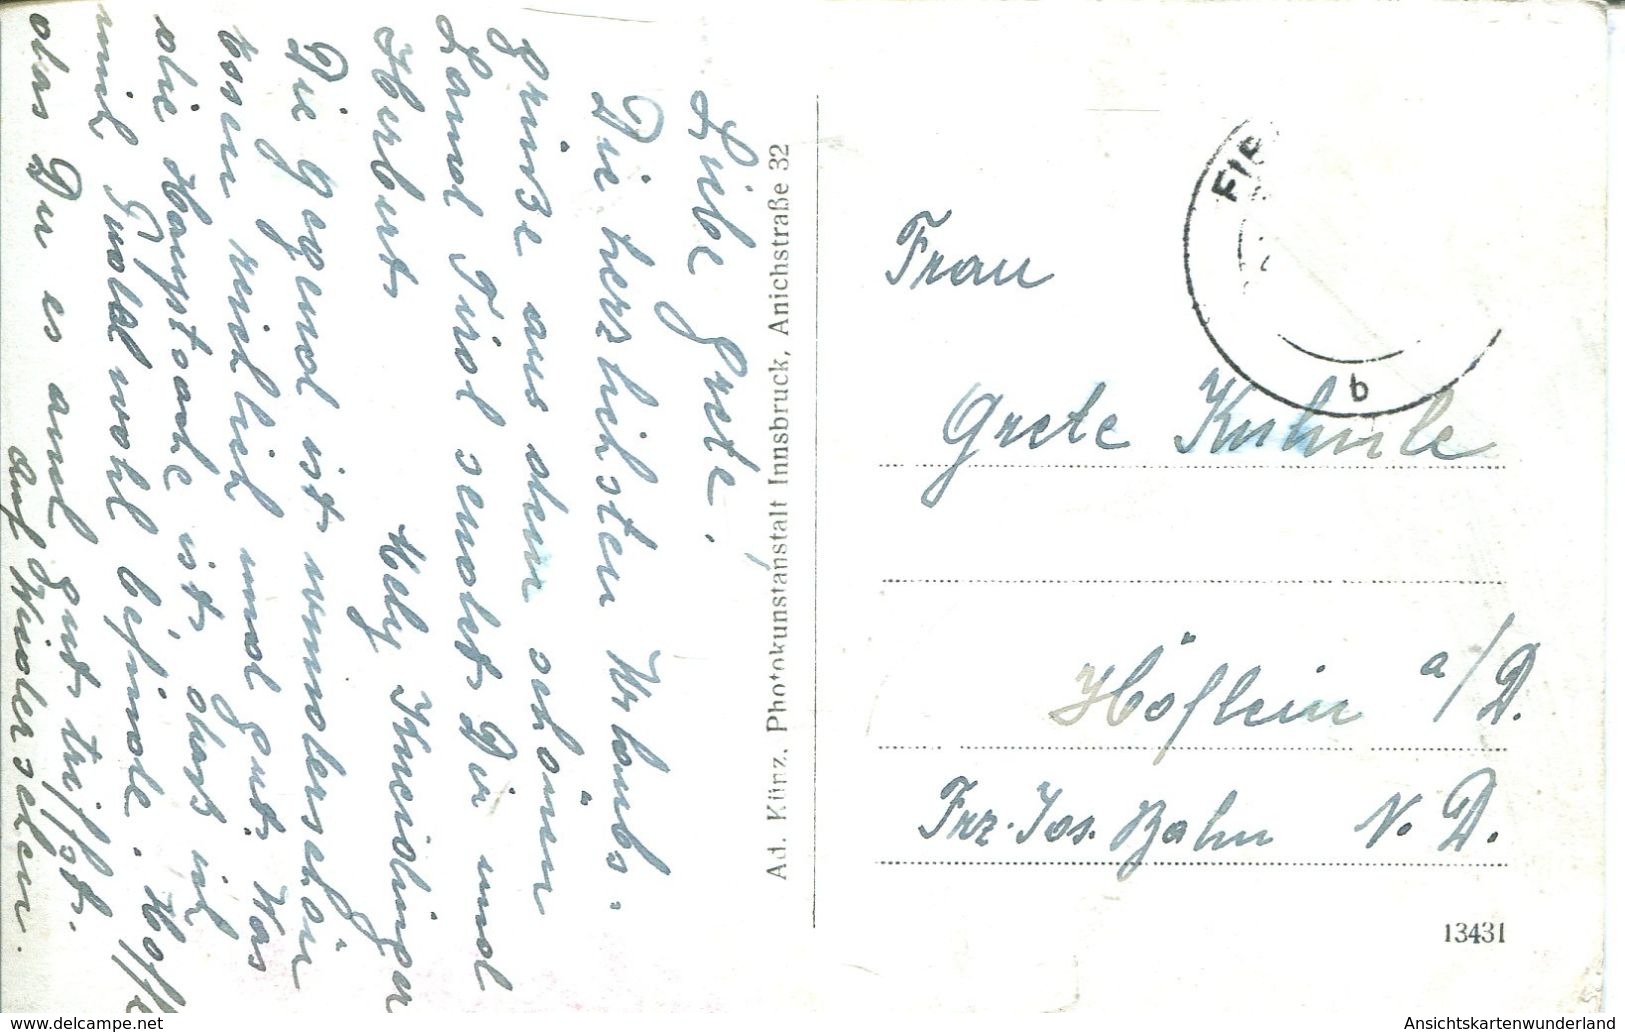 Liebe Grete!
Die herzlichsten Urlaubs-
grüße aus dem schönen
Land Tirol sendet Dir und
Herbert
Hedy
Die Gegend ist wunderschön
Essen reichlich und gut. Was
die Hauptsache ist, dass ich
mich wohl befinde. Hoffe
das Du es auch gut triffst.
Auf Wiedersehen.
Ad. Künz, Photokunstanstalt Innsbruck, Anichstraße 32
FIE
b
Frau
Grete Kuhnle
Höflein a/D.
Frz. Jos. Bahn N. D.
13431
www.delcampe.net
Ansichtskartenwunderland